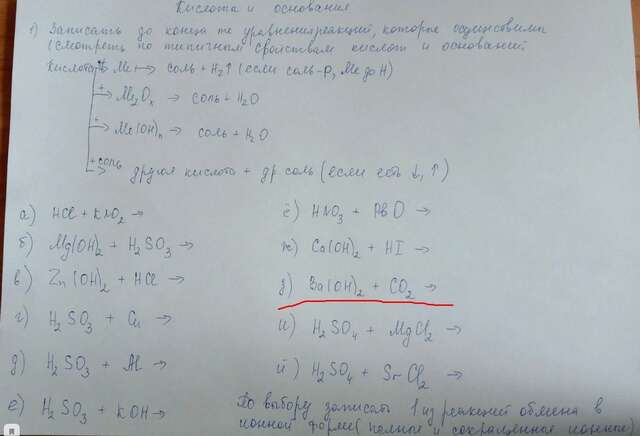 Кислота и основания
1) Записать до конца те уравнения реакций, которые осуществимы
(смотреть по типичным свойствам кислот и оснований
Кислота + Me → соль + H₂↑ (если соль-р, Me до H)
+ Me₂Oₓ → соль + H₂O
+ Me(OH)ₙ → соль + H₂O
+ соль → другая кислота + др соль (если есть ↓, ↑)
а) HCl + KNO₂ →
б) Mg(OH)₂ + H₂SO₃ →
в) Zn(OH)₂ + HCl →
г) H₂SO₃ + Cu →
д) H₂SO₃ + Al →
е) H₂SO₃ + KOH →
ё) HNO₃ + PbO →
ж) Ca(OH)₂ + HI →
з) Ba(OH)₂ + CO₂ →
и) H₂SO₄ + MgCl₂ →
й) H₂SO₄ + SrCl₂ →
По выбору записать 1 из реакций обмена в
ионной форме (полное и сокращённое ионное)
Я